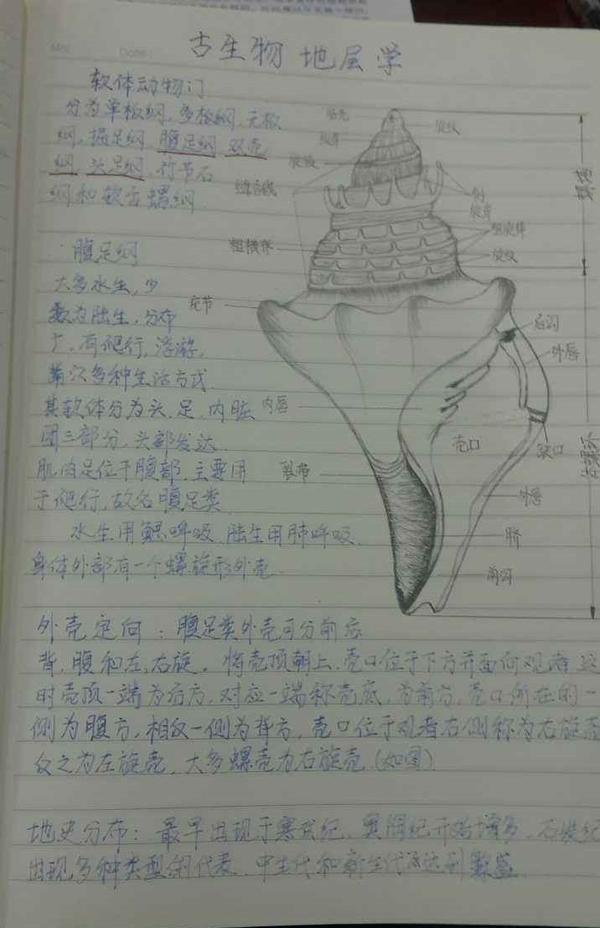 No.
Date
古生物地层学
软体动物门
分为单板纲、多板纲、无板
纲、掘足纲、腹足纲、双壳
纲、头足纲、竹节石
纲和软舌螺纲
腹足纲
大多水生，少
数为陆生，分布
广，有爬行，浮游，
其软体分为头、足、内脏
团三部分，头部发达
肌肉足位于腹部，主要用
于爬行，故名腹足类
水生用鳃呼吸，陆生用肺呼吸
身体外部有一个螺旋形外壳
胎壳
旋纹
缝合线
旋纹
后沟
外唇
内唇
壳口
裂口
外唇
脐
前沟
外壳定向：腹足类外壳可分前后
背、腹和左、右旋，将壳顶朝上，壳口位于下方并面向观者，这
时壳顶一端为后方，对应一端称壳底，为前方，壳口所在的一
侧为腹方，相反一侧为背方，壳口位于观者右侧称为右旋壳
反之为左旋壳，大多螺壳为右旋壳（如图）
地史分布：最早出现于寒武纪，奥陶纪开始增多，石炭纪
出现多种类型的代表，中生代和新生代达到繁盛